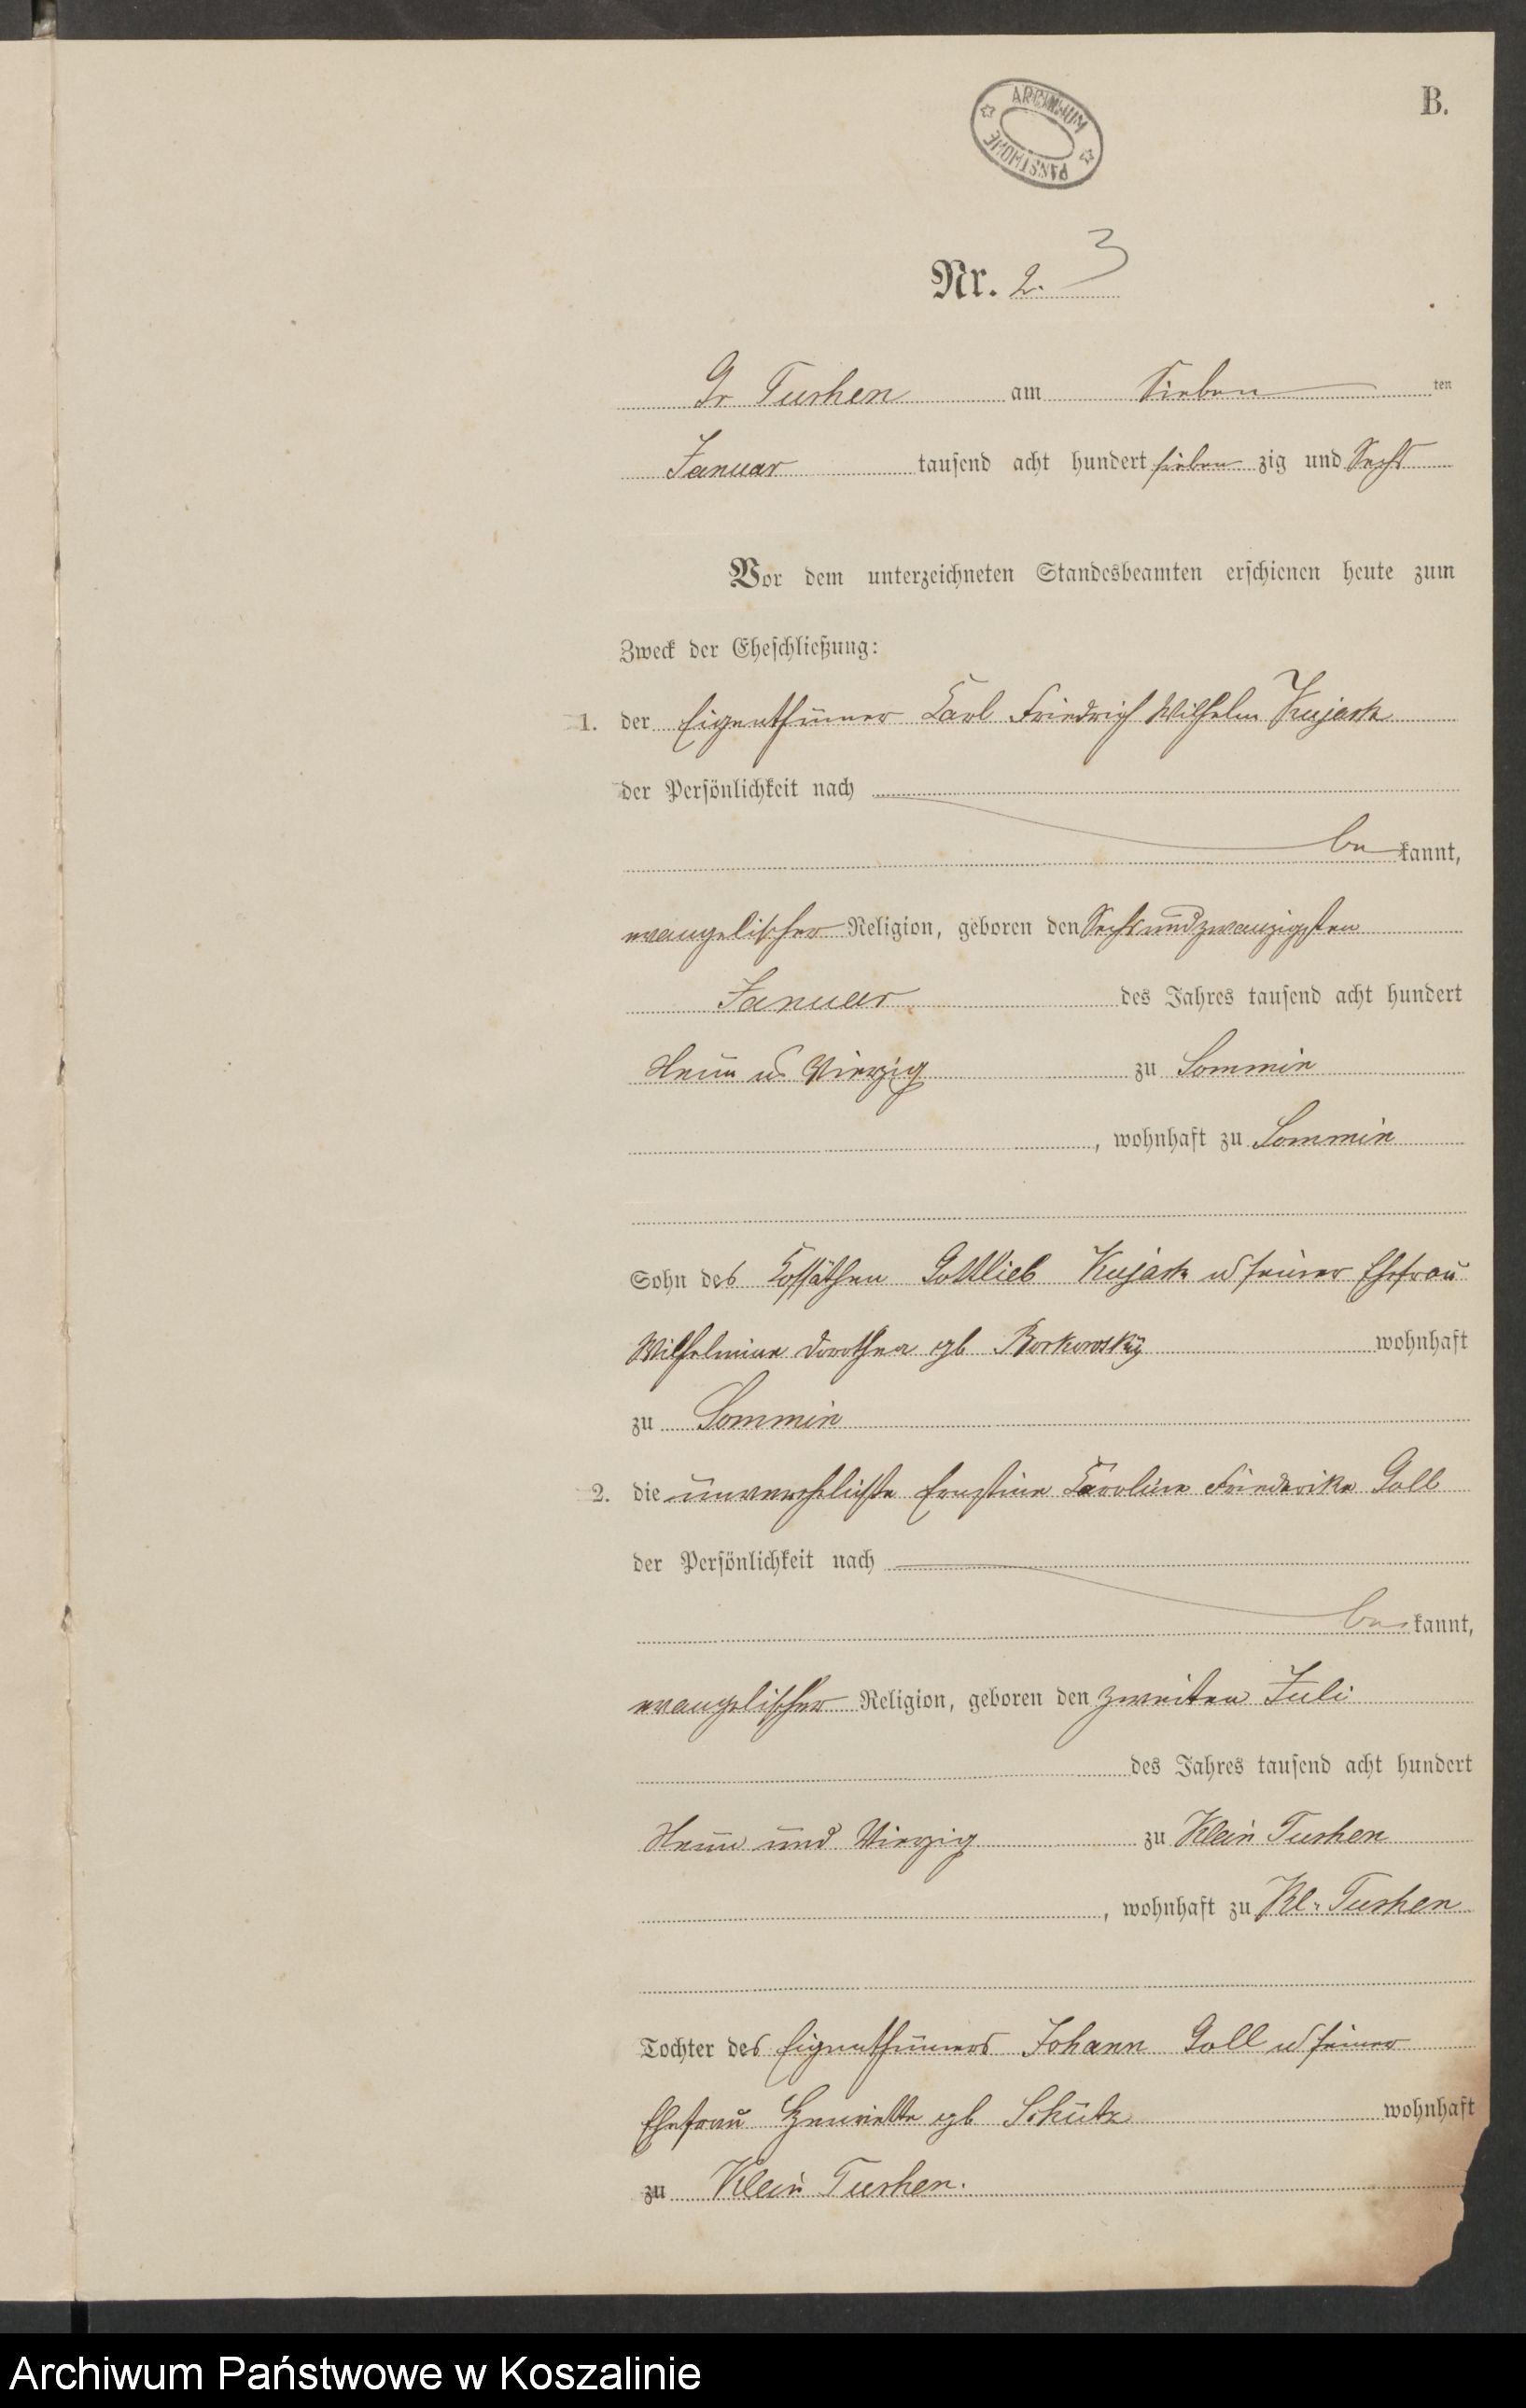 B.
ARCHIWUM PAŃSTWOWE
Nr. 2. 3
Gr Tuchen am Sieben ten
Januar tausend acht hundert sieben zig und Sechs
Vor dem unterzeichneten Standesbeamten erschienen heute zum
Zweck der Eheschließung:
1. der Eigenthümer Carl Friedrich Wilhelm Kujack
der Persönlichkeit nach
be kannt,
evangelischer Religion, geboren den Sechsundzwanzigsten
Januar des Jahres tausend acht hundert
Neun u. Vierzig zu Sommin
, wohnhaft zu Sommin
Sohn des Kossäthen Gottlieb Kujack u seiner Ehefrau
Wilhelmine Dorothea gb Borkowsky wohnhaft
zu Sommin
2. die unverehelichte Ernstine Caroline Friederike Goll
der Persönlichkeit nach
be kannt,
evangelischer Religion, geboren den zweiten Juli
des Jahres tausend acht hundert
Neun und Vierzig zu Klein Tuchen
, wohnhaft zu Kl. Tuchen
Tochter des Eigenthümers Johann Goll u seiner
Ehefrau Henriette gb Schütz wohnhaft
zu Klein Tuchen.
Archiwum Państwowe w Koszalinie